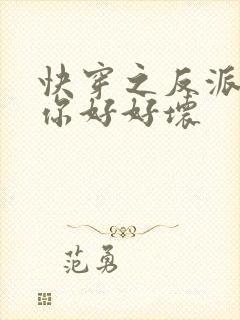 快穿之反派
你好好壞
范勇